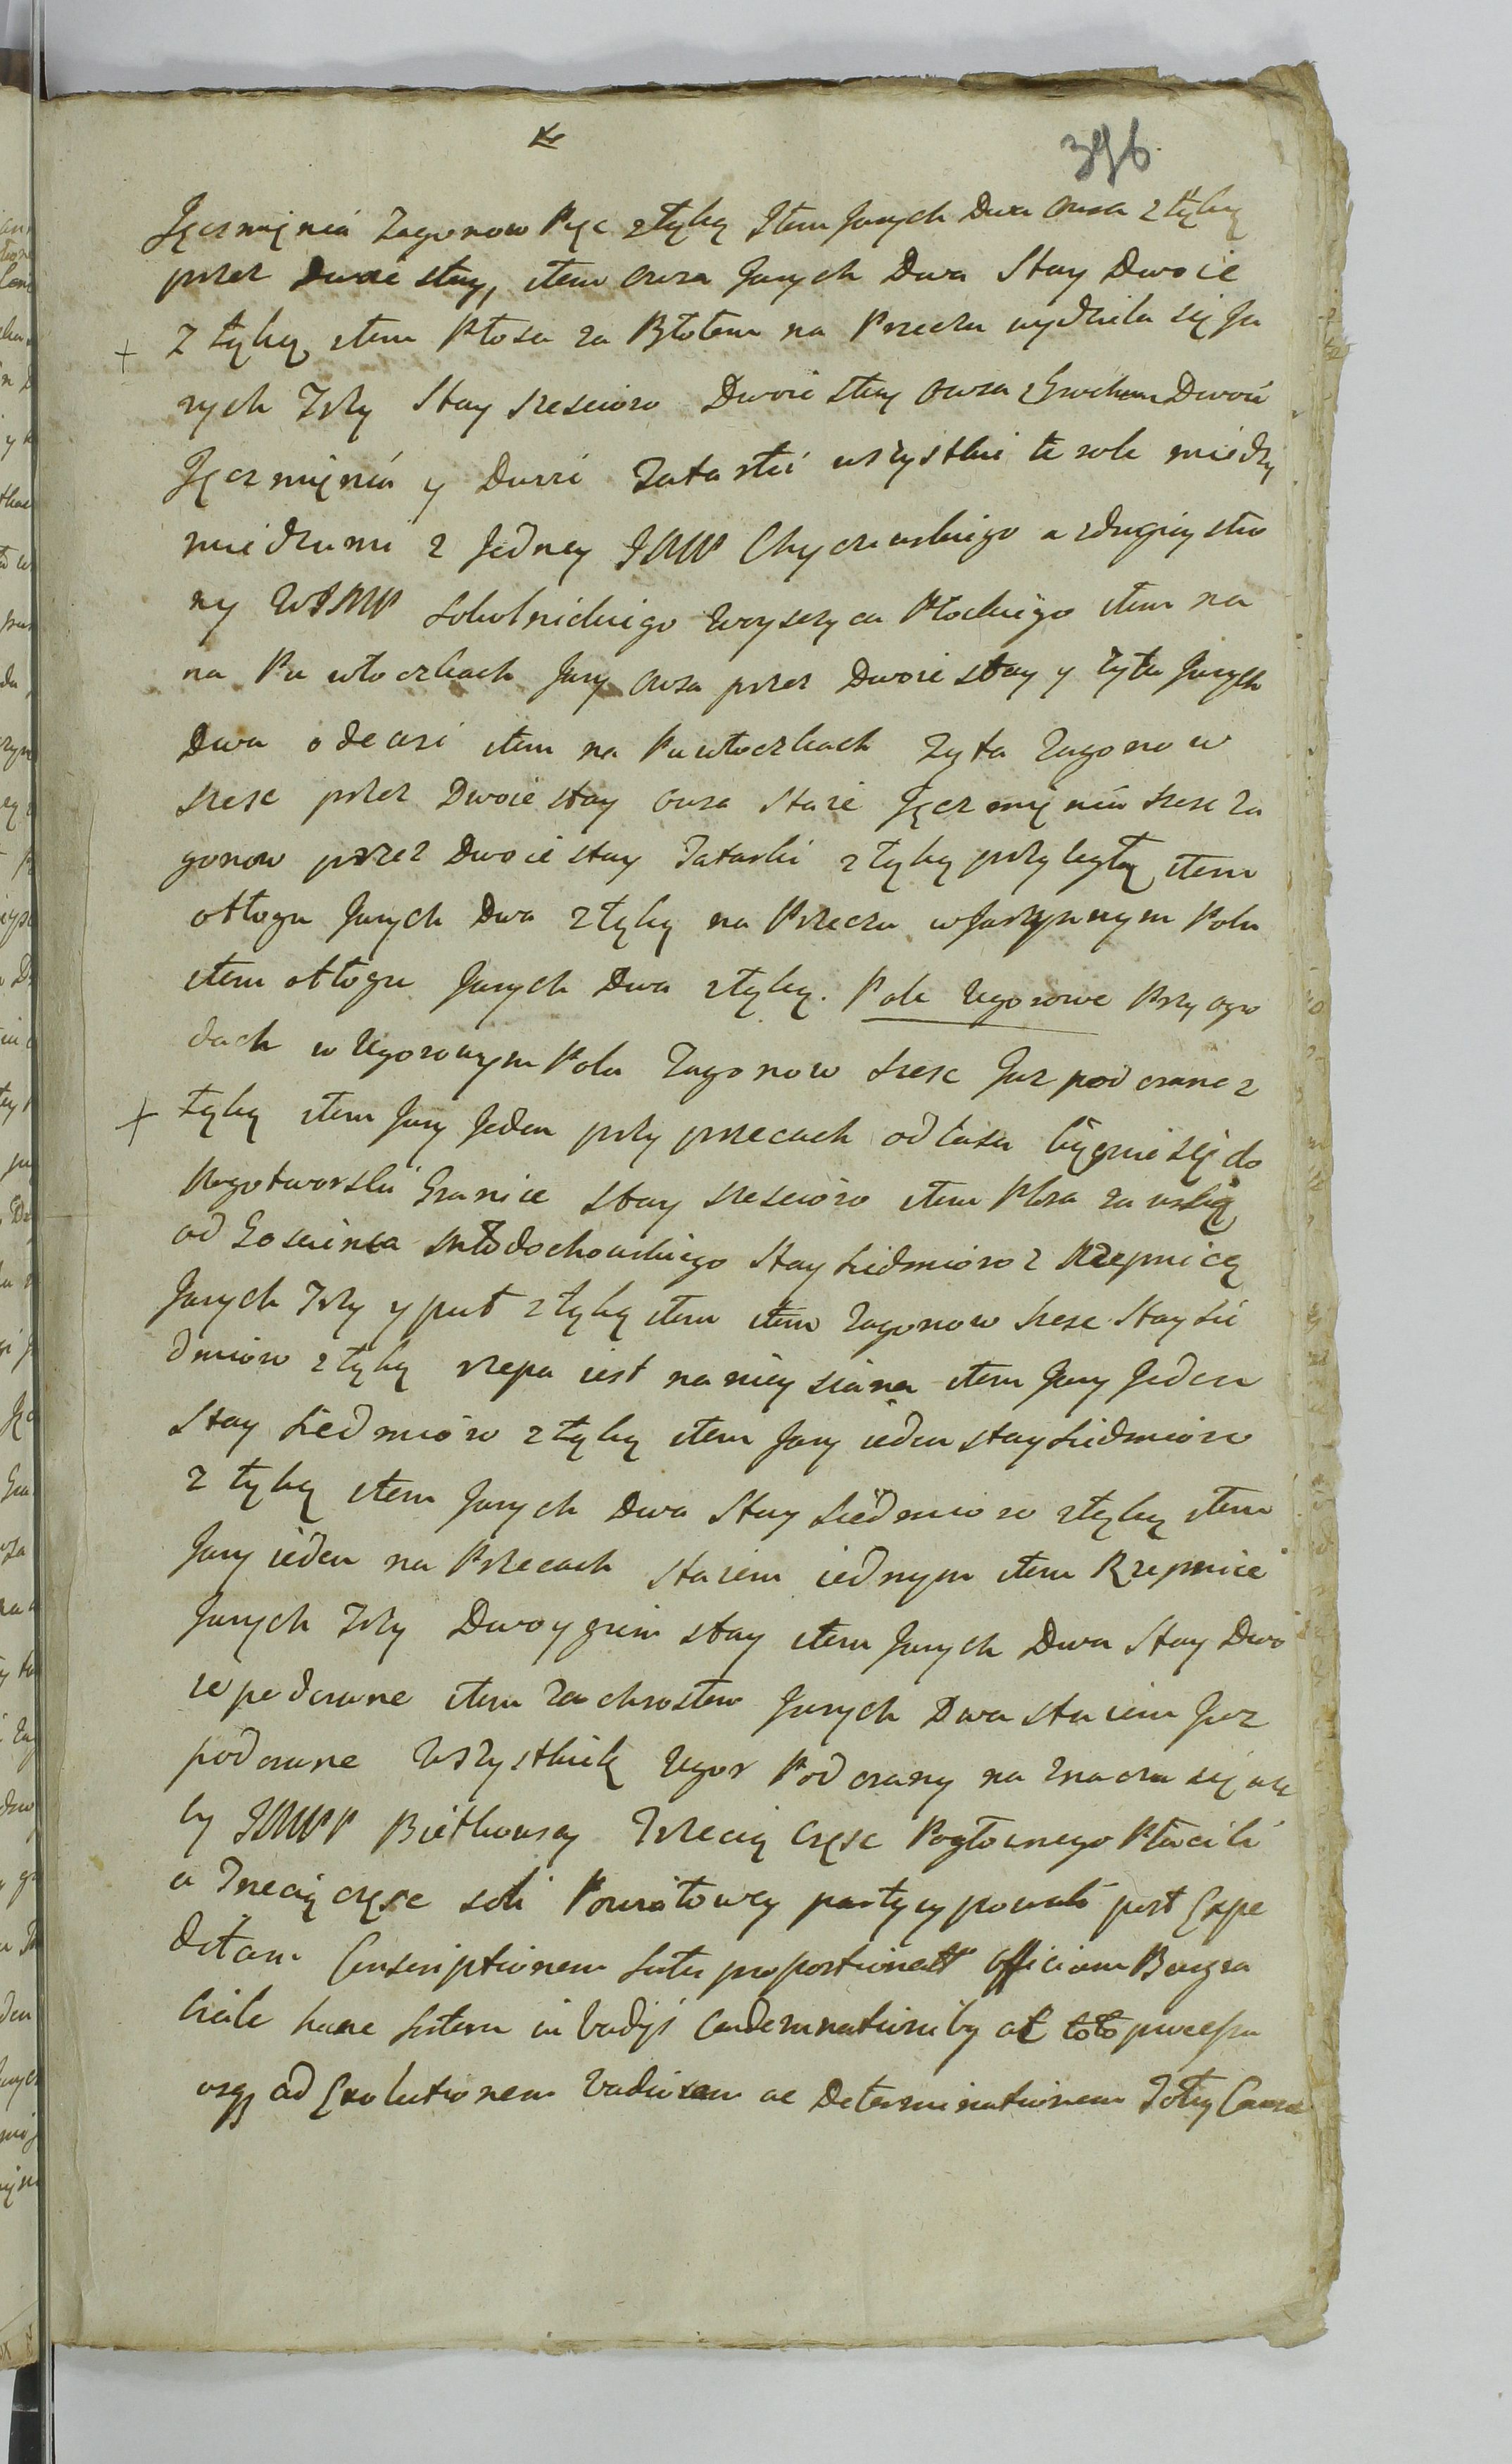 396.
Jęczmięnia Zagonow Pięc złyką Item Jarych Dwa owsa z łyką
przez Dwoie stay, item owsa Jarych Dwa Stay Dwoie
z łyką item Płosa za Błotem na Przeczu wydziela się Ja
rych Trzy Stay szescioro Dwoie stay owsa z Grochem Dwoie
Jęczmięnia y Dwoie Tatarki wszystkie te role miedzy
miedzami z Jedney JMP Chyczewskiego a zdrugiey stro
ny WJMP Sokolnickiego Woyszyca Płockiego item na
na Pawłoczkach Jary owsa przez Dwoie stay y żyta Jarych
Dwa item na Pawłoczkach Zyta Zagonow
szesc przez Dwoie stay owsa staie Jęczmięnia szesc Za
gonow przez Dwoie stay Tatarki z łyką przyległą item
obłogu Jarych Dwa złyką na Przeczu w Jarzynnym Polu
item obłogu Jarych Dwa złyką. Pole Ugorowe Przy ogro
dach w Ugorowym Polu Zagonow szesc Juz podorane z
łyką item Jary Jeden przy przecach od lasu Ciągnie się do
Rogotworski Granice stay szescioro item Płosa za wską
od Goscinca Młodochowskiego Stay siedmioro z Rzepnicą
Jarych Trzy y puł z łyką item item Zagonow szesc Stay sie
dmioro z łyką rzepa iest na niey siana item Jary Jeden
Stay siedmioro z łyką item Jary ieden stay siedmioro
z łyką item Jarych Dwa Stay siedmioro złyką item
Jary ieden na Przecach staiem iednym item Rzepnice
Jarych Trzy Dwoygiem stay item Jarych Dwa Stay Dwo
ie podorane item Za chrostem Jarych Dwa staiem Juz
podorane Wszystkiek Ugor Podorany na znacza się ale
by JMPP Bietkowscy Trzecią Częsc Pogłownego Płacili
a Trzecią częsc soli Powiatowey partycypowali post Expe
ditam Conscriptionem officium
hanc in Vadys Condemnationiby ac toto processu
usq ad Exolutionem Vadiorum ac Determinationem Toty Causae